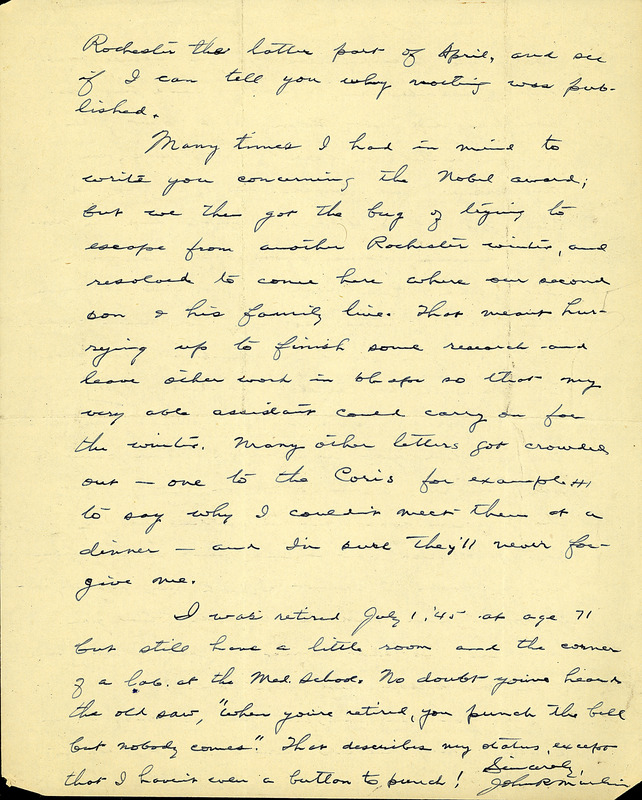 Rochester the latter part of April, and see
if I can tell you why nothing was pub-
lished.
Many times I had in mind to
write you concerning the Nobel award;
but we then got the bug of trying to
escape from another Rochester winter, and
resolved to come here where our second
son & his family live. That meant hur-
rying up to finish some research and
leave other work in shape so that my
very able assistant could carry on for
the winter. Many other letters got crowded
out — one to the Coris for example
to say why I couldn't meet them at a
dinner — and I'm sure they'll never for-
give me.
I was retired July 1, '45 at age 71
but still have a little room and the corner
of a lab. at the Med. School. No doubt you've heard
the old saw, "When you're retired, you punch the bell
but nobody comes". That describes my status, except
that I haven't even a button to punch!
Sincerely,
John R Murlin